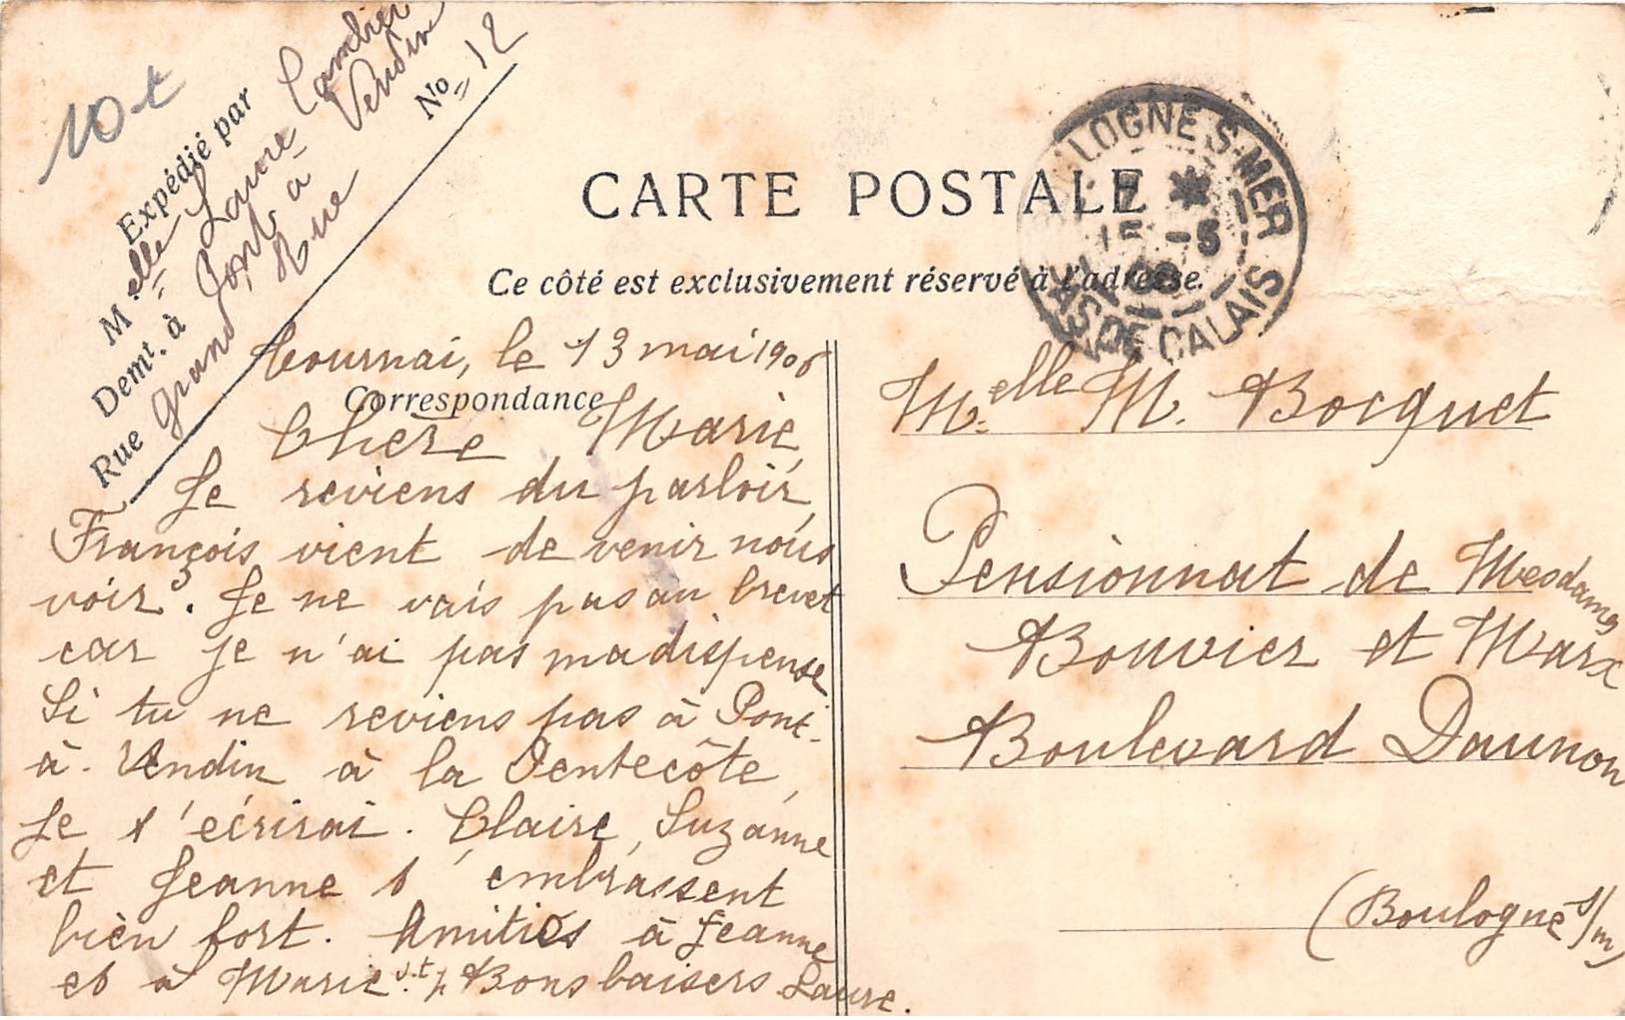 10 t
Expédié par
Melle Laure Cambier
Demt. à Pont à Vendin
Rue Grand Rue No 12
CARTE POSTALE
Ce côté est exclusivement réservé à l'adresse.
LOGNE-S-MER
7 * 
15 -5
PAS DE CALAIS
Correspondance
Tournai, le 13 mai 1908
Chère Marie,
Je reviens du parloir,
François vient de venir nous
voir. Je ne vais pas au brevet
car je n'ai pas ma dispense
Si tu ne reviens pas à Pont-
à-Vendin à la Pentecôte,
Je t'écrirai. Claire, Suzanne
et Jeanne t'embrassent
bien fort. Amitiés à Jeanne
et à Marie Bons baisers Laure.
Melle M. Bocquet
Pensionnat de Mesdames
Bouvier et Marx
Boulevard Daunon
(Boulogne s/m)